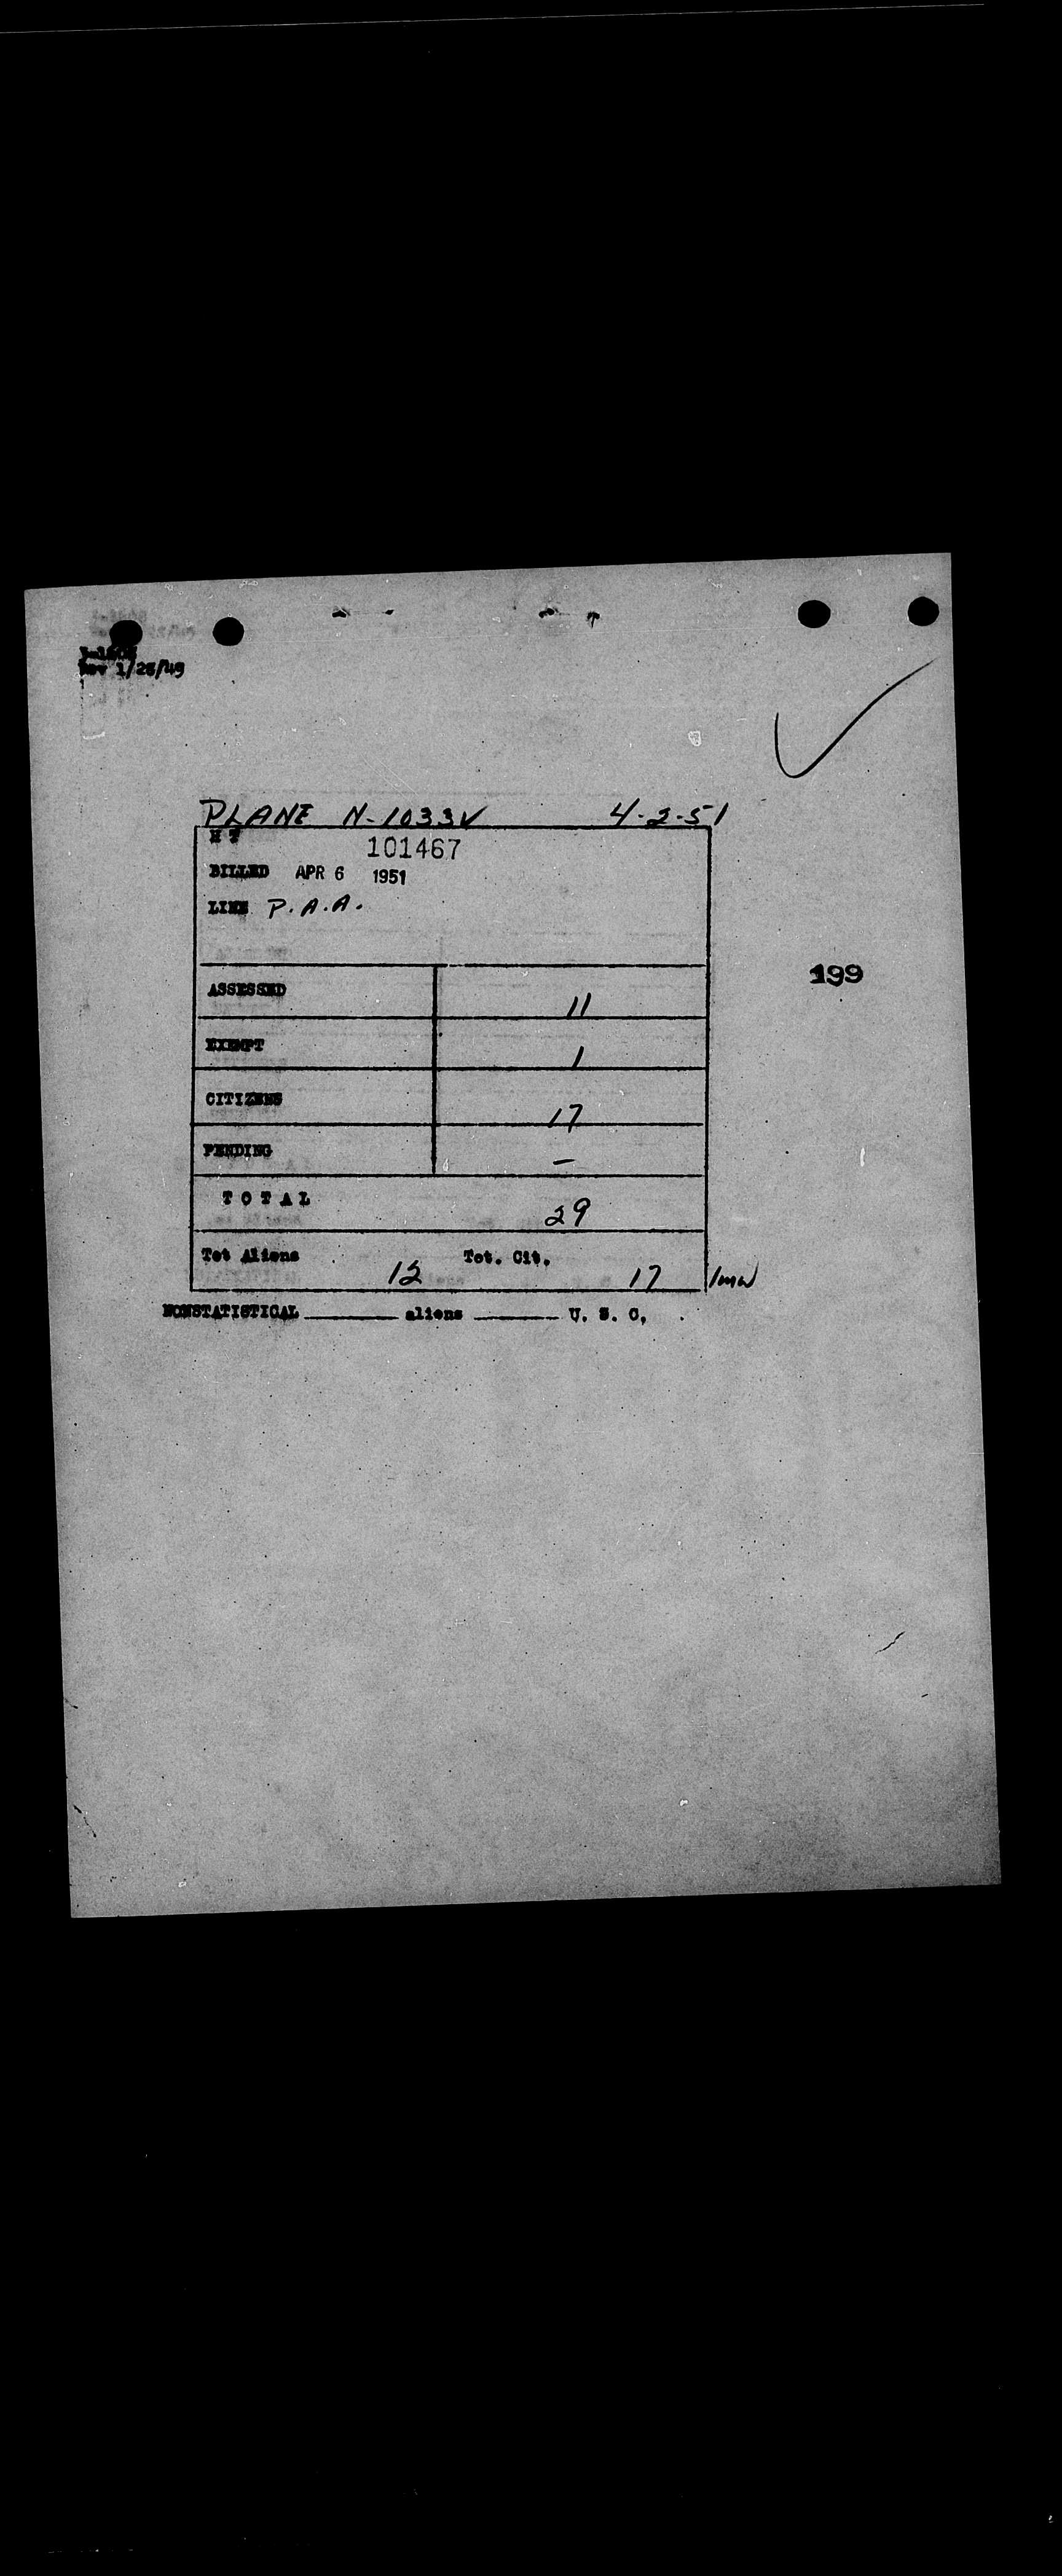 Rev 1/28/49
PLANE N-1033V 4-2-51
H T 101467
BILLED APR 6 1951
LINE P.A.A.
199
ASSESSED 11
EXEMPT 1
CITIZENS 17
PENDING –
TOTAL 29
Tot Aliens 12 Tot. Cit. 17 /mw
NONSTATISTICAL ______ aliens ______ U. S. C.